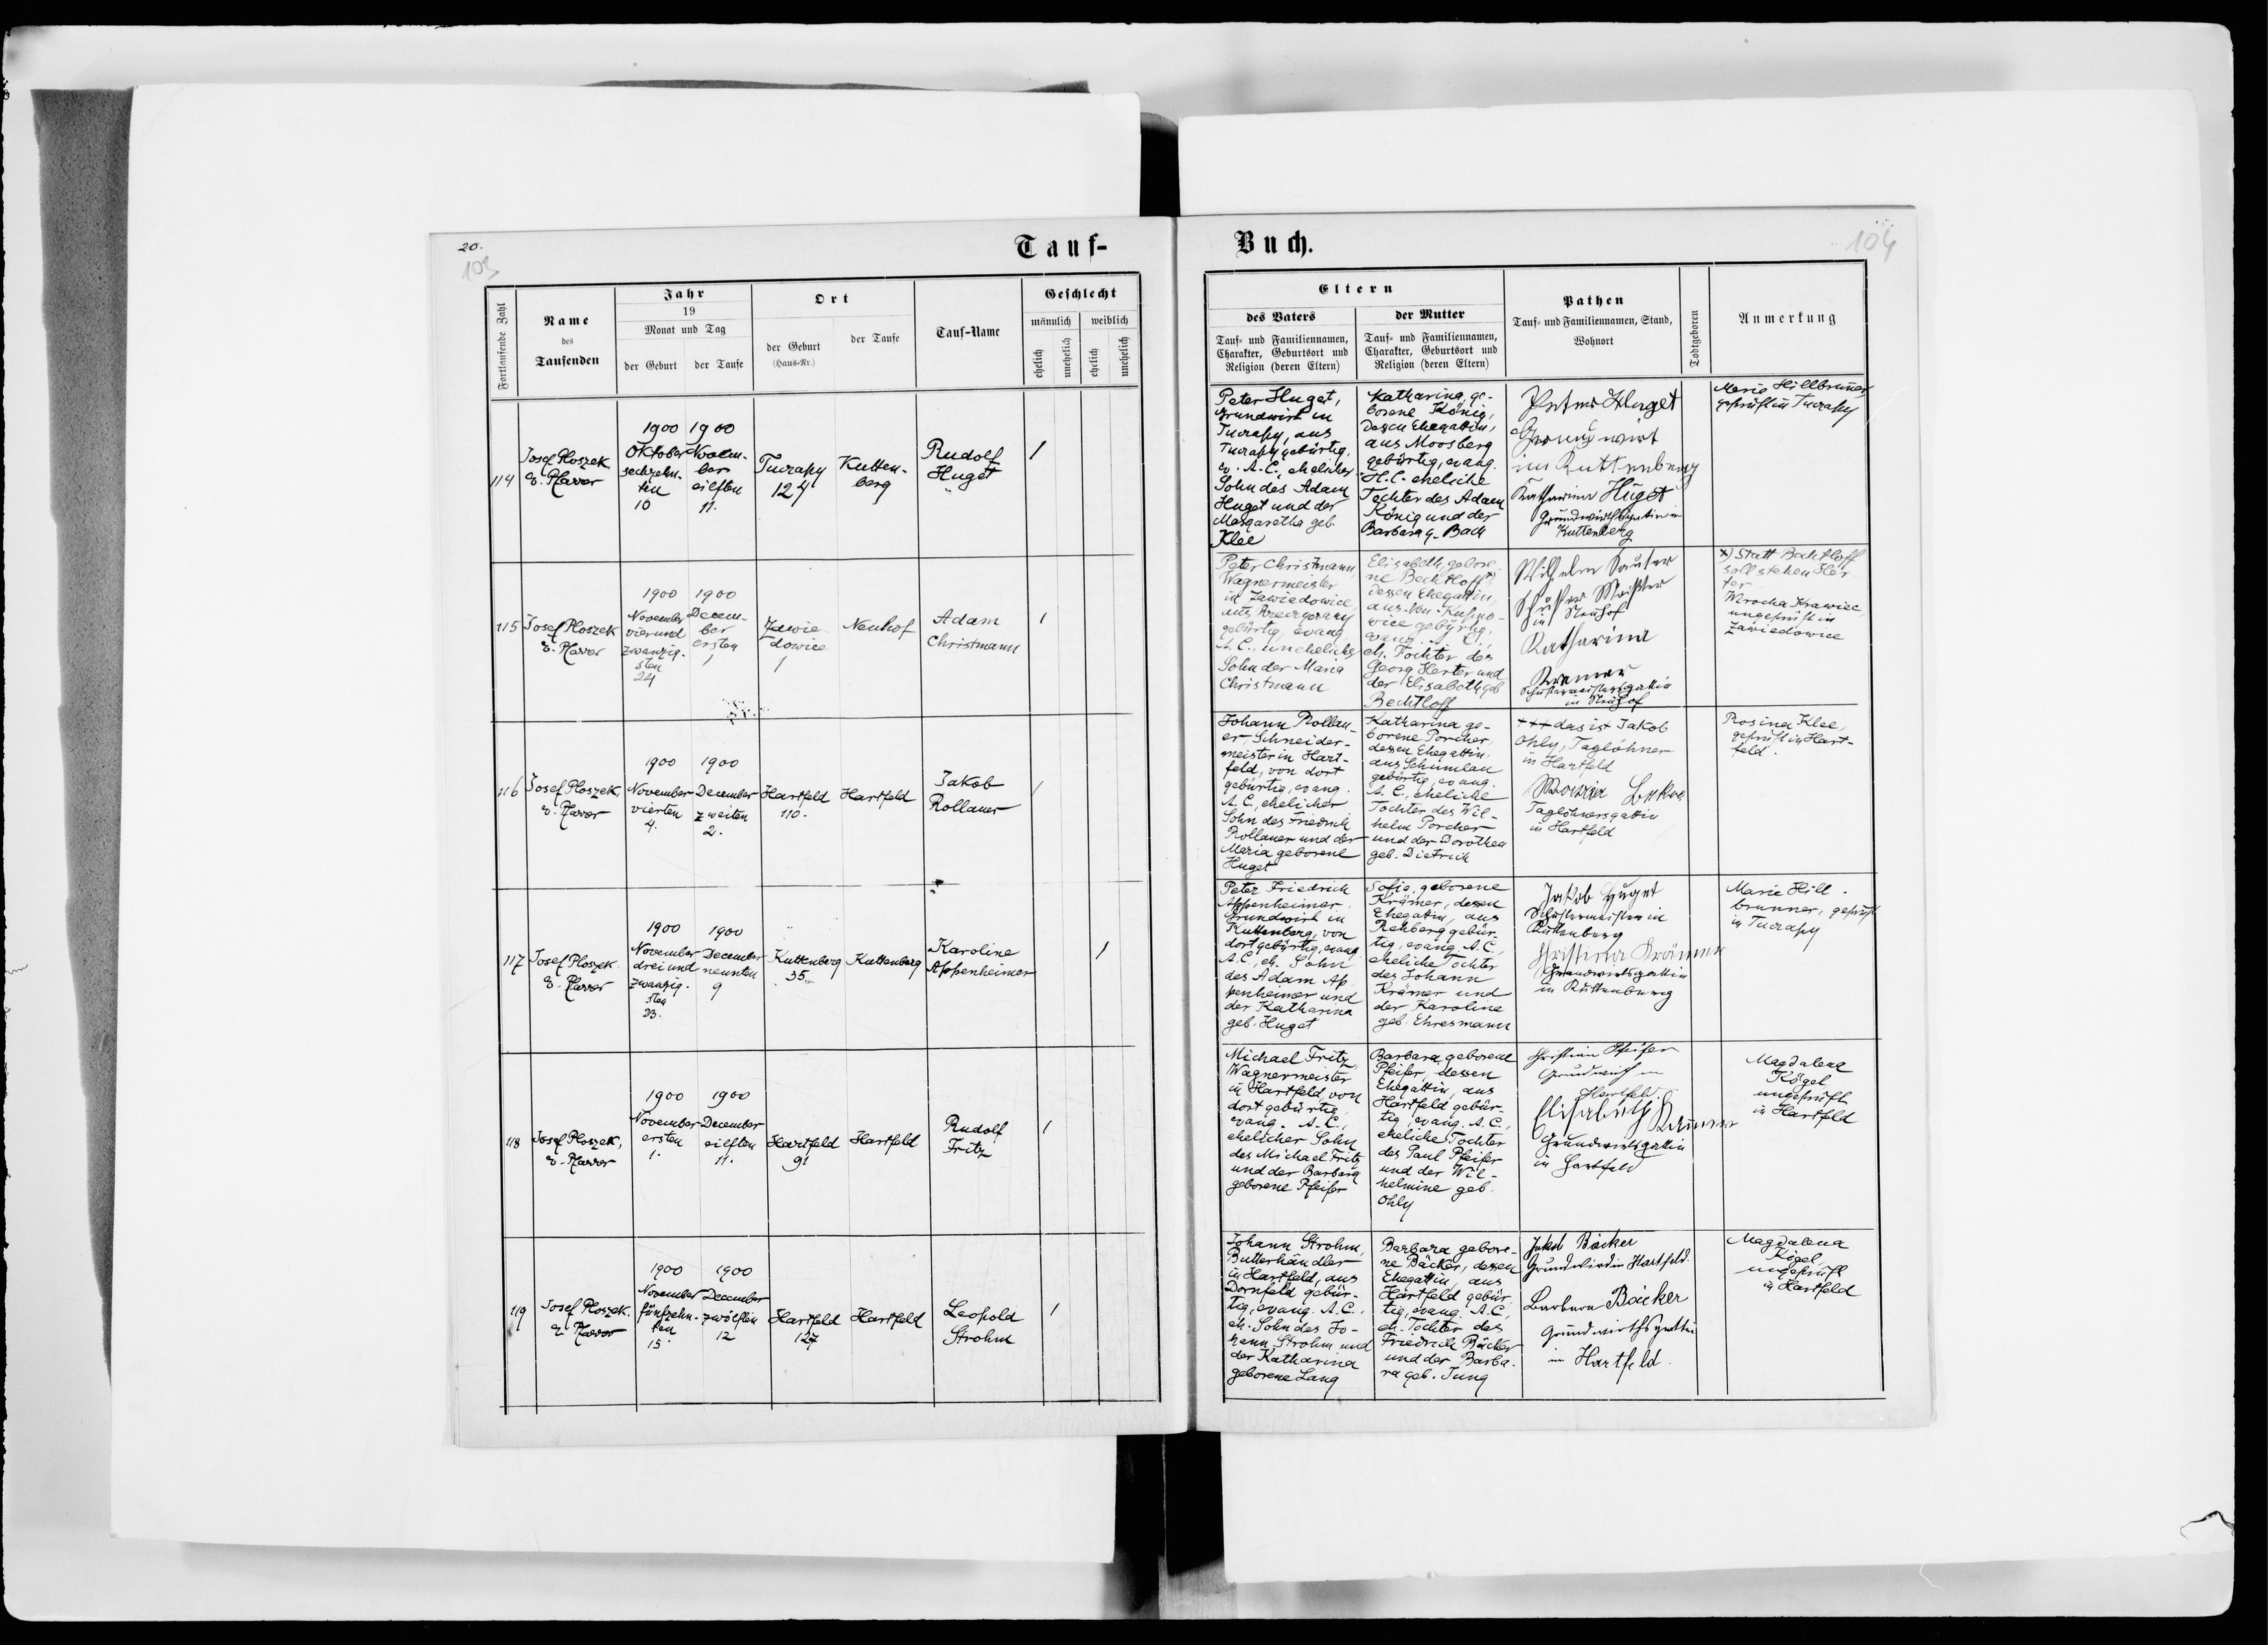 20.
103
Tauf-
Fortlaufende Zahl
Name
des
Taufenden
Jahr
19
Monat und Tag
der Geburt
der Taufe
Ort
der Geburt
(Haus-Nr.)
der Taufe
Tauf-Name
Geschlecht
männlich
weiblich
ehelich
unehelich
ehelich
unehelich
114
Josef Ploszek,
e. Pfarrer
1900
Oktober
sechzehn-
ten
1900
Novem-
ber
eilften
11.
124
Kutten-
berg
Rudolf
Huget
1
115
Josef Ploszek
e. Pfarrer
1900
November
vierund
zwanzig-
sten
24
1900
Decem-
ber
ersten
1
Zawie-
dowice
1
Neuhof
Adam
Christmann
1
116
Josef Ploszek,
e. Pfarrer
1900
November
vierten
4.
1900
December
zweiten
2.
Hartfeld
110.
Hartfeld
Jakob
Rollauer
1
117
Josef Ploszek
e. Pfarrer
1900
November
drei und
zwanzig-
sten
23.
1900
December
neunten
9
Kuttenberg
35
Kuttenberg
Karoline
Appenheimer
1
118
Josef Ploszek,
e. Pfarrer
1900
November
ersten
1.
1900
December
eilften
11.
Hartfeld
91
Hartfeld
Rudolf
Fritz
1
119
Josef Ploszek.
e. Pfarrer
1900
November
fünfzehn-
ten
15.
1900
December
zwölften
12
Hartfeld
127
Hartfeld
Leopold
Strohm
1
Buch.
104
Eltern
des Vaters
Tauf- und Familiennamen,
Charakter, Geburtsort und
Religion (deren Eltern)
der Mutter
Tauf- und Familiennamen,
Charakter, Geburtsort und
Religion (deren Eltern)
Pathen
Tauf- und Familiennamen, Stand,
Wohnort
Todtgeboren
Anmerkung
Peter Huget,
Grundwirt in
aus
gebürtig,
ev. A.C., ehelicher
Sohn des Adam
Huget und der
Margaretha geb.
Klee
Katharina, ge-
borene König,
dessen Ehegattin,
aus Moosberg
gebürtig, evang.
H.C. eheliche
Tochter des Adam
König und der
Barbara g. Bach
Huget
in Kuttenberg
Katharina Huget
Grundwirthsgattin in
Kuttenberg
Maria Hillbrunner,
geprüft in
Peter Christmann,
Wagnermeister
in Zawiedowice,
aus
gebürtig, evang.
A.C., unehelicher
Sohn der Maria
Christmann
Elisabeth, gebore-
ne Bechtloff x)
dessen Ehegattin,
gebürtig,
evang.
eh. Tochter des
Georg Herter und
der Elisabeth geb.
Bechtloff
Wilhelm
in Neuhof
Katharina
Kramer
Schustermeistersgattin
in Neuhof
x) Statt Bechtloff
soll stehen Her-
ter
Krawiec
ungeprüft in
Zawiedowice
Johann Rollau-
er Schneider-
meister in Hart-
feld, von dort
gebürtig, evang.
A.C., ehelicher
Sohn des Friedrich
Rollauer und der
Maria geborene
Huget
Katharina ge-
borene Porcher,
dessen Ehegattin,
aus Schumlau
gebürtig, evang.
A.C., eheliche
Tochter des Wil-
helm Porcher
und der Dorothea
geb. Dietrich
+++ das ist Jakob
Ohly, Taglöhner
in Hartfeld
Taglöhnersgattin
in Hartfeld
Rosina Klee,
geprüft in Hart-
feld.
Peter Friedrich
Appenheimer,
Grundwirt in
Kuttenberg, von
dort gebürtig, evang.
A.C., eh. Sohn
des Adam Ap-
penheimer und
der Katharina
geb. Huget
Sofie, geborene
Krämer, dessen
Ehegattin, aus
Rehberg gebür-
tig, evang. A.C.,
eheliche Tochter
des Johann
Krämer und
der Karoline
geb. Ehresmann
Jakob Huget
Schustermeister in
Kuttenberg
Christina Krämmer
Grundwirtsgattin
in Kuttenberg
Marie Hill-
brunner, geprüft
in
Michael Fritz,
Wagnermeister
in Hartfeld von
dort gebürtig,
evang. A.C.,
ehelicher Sohn
des Michael Fritz
und der Barbara
geborene Pfeifer
Barbara geborene
Pfeifer, dessen
Ehegattin, aus
Hartfeld gebür-
tig, evang. A.C.,
eheliche Tochter
des Paul Pfeifer
und der Wil-
helmine geb.
Ohly
Christian Pfeifer
Grundwirt in
Hartfeld.
Elisabeth
Grundwirtsgattin
in Hartfeld
Magdalena
Kögel
ungeprüft
in Hartfeld
Johann Strohm,
Butterhändler
in Hartfeld, aus
Dornfeld gebür-
tig, evang. A.C.,
eh. Sohn des Jo-
hann Strohm und
der Katharina
geborene Lang
Barbara gebore-
ne Bäcker, dessen
Ehegattin, aus
Hartfeld gebür-
tig, evang. A.C.,
eh. Tochter des
Friedrich Bäcker
und der Barba-
ra geb. Jung
Jakob Bäcker
Grundwirt in Hartfeld.
Barbara Bäcker
Grundwirthsgattin
in Hartfeld.
Magdalena
Kögel
ungeprüft
in Hartfeld